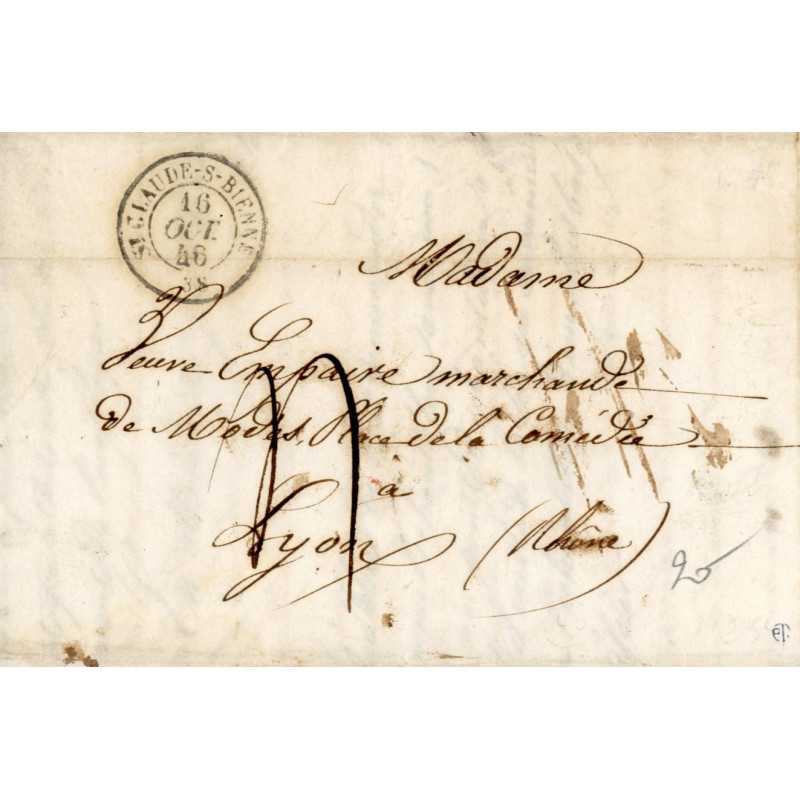 ST CLAUDE-S-BIENNE
16
OCT.
46
38
Madame
Veuve Empaire marchande
de Modes, Place de la Comédie
a
Lyon (Rhône)
20